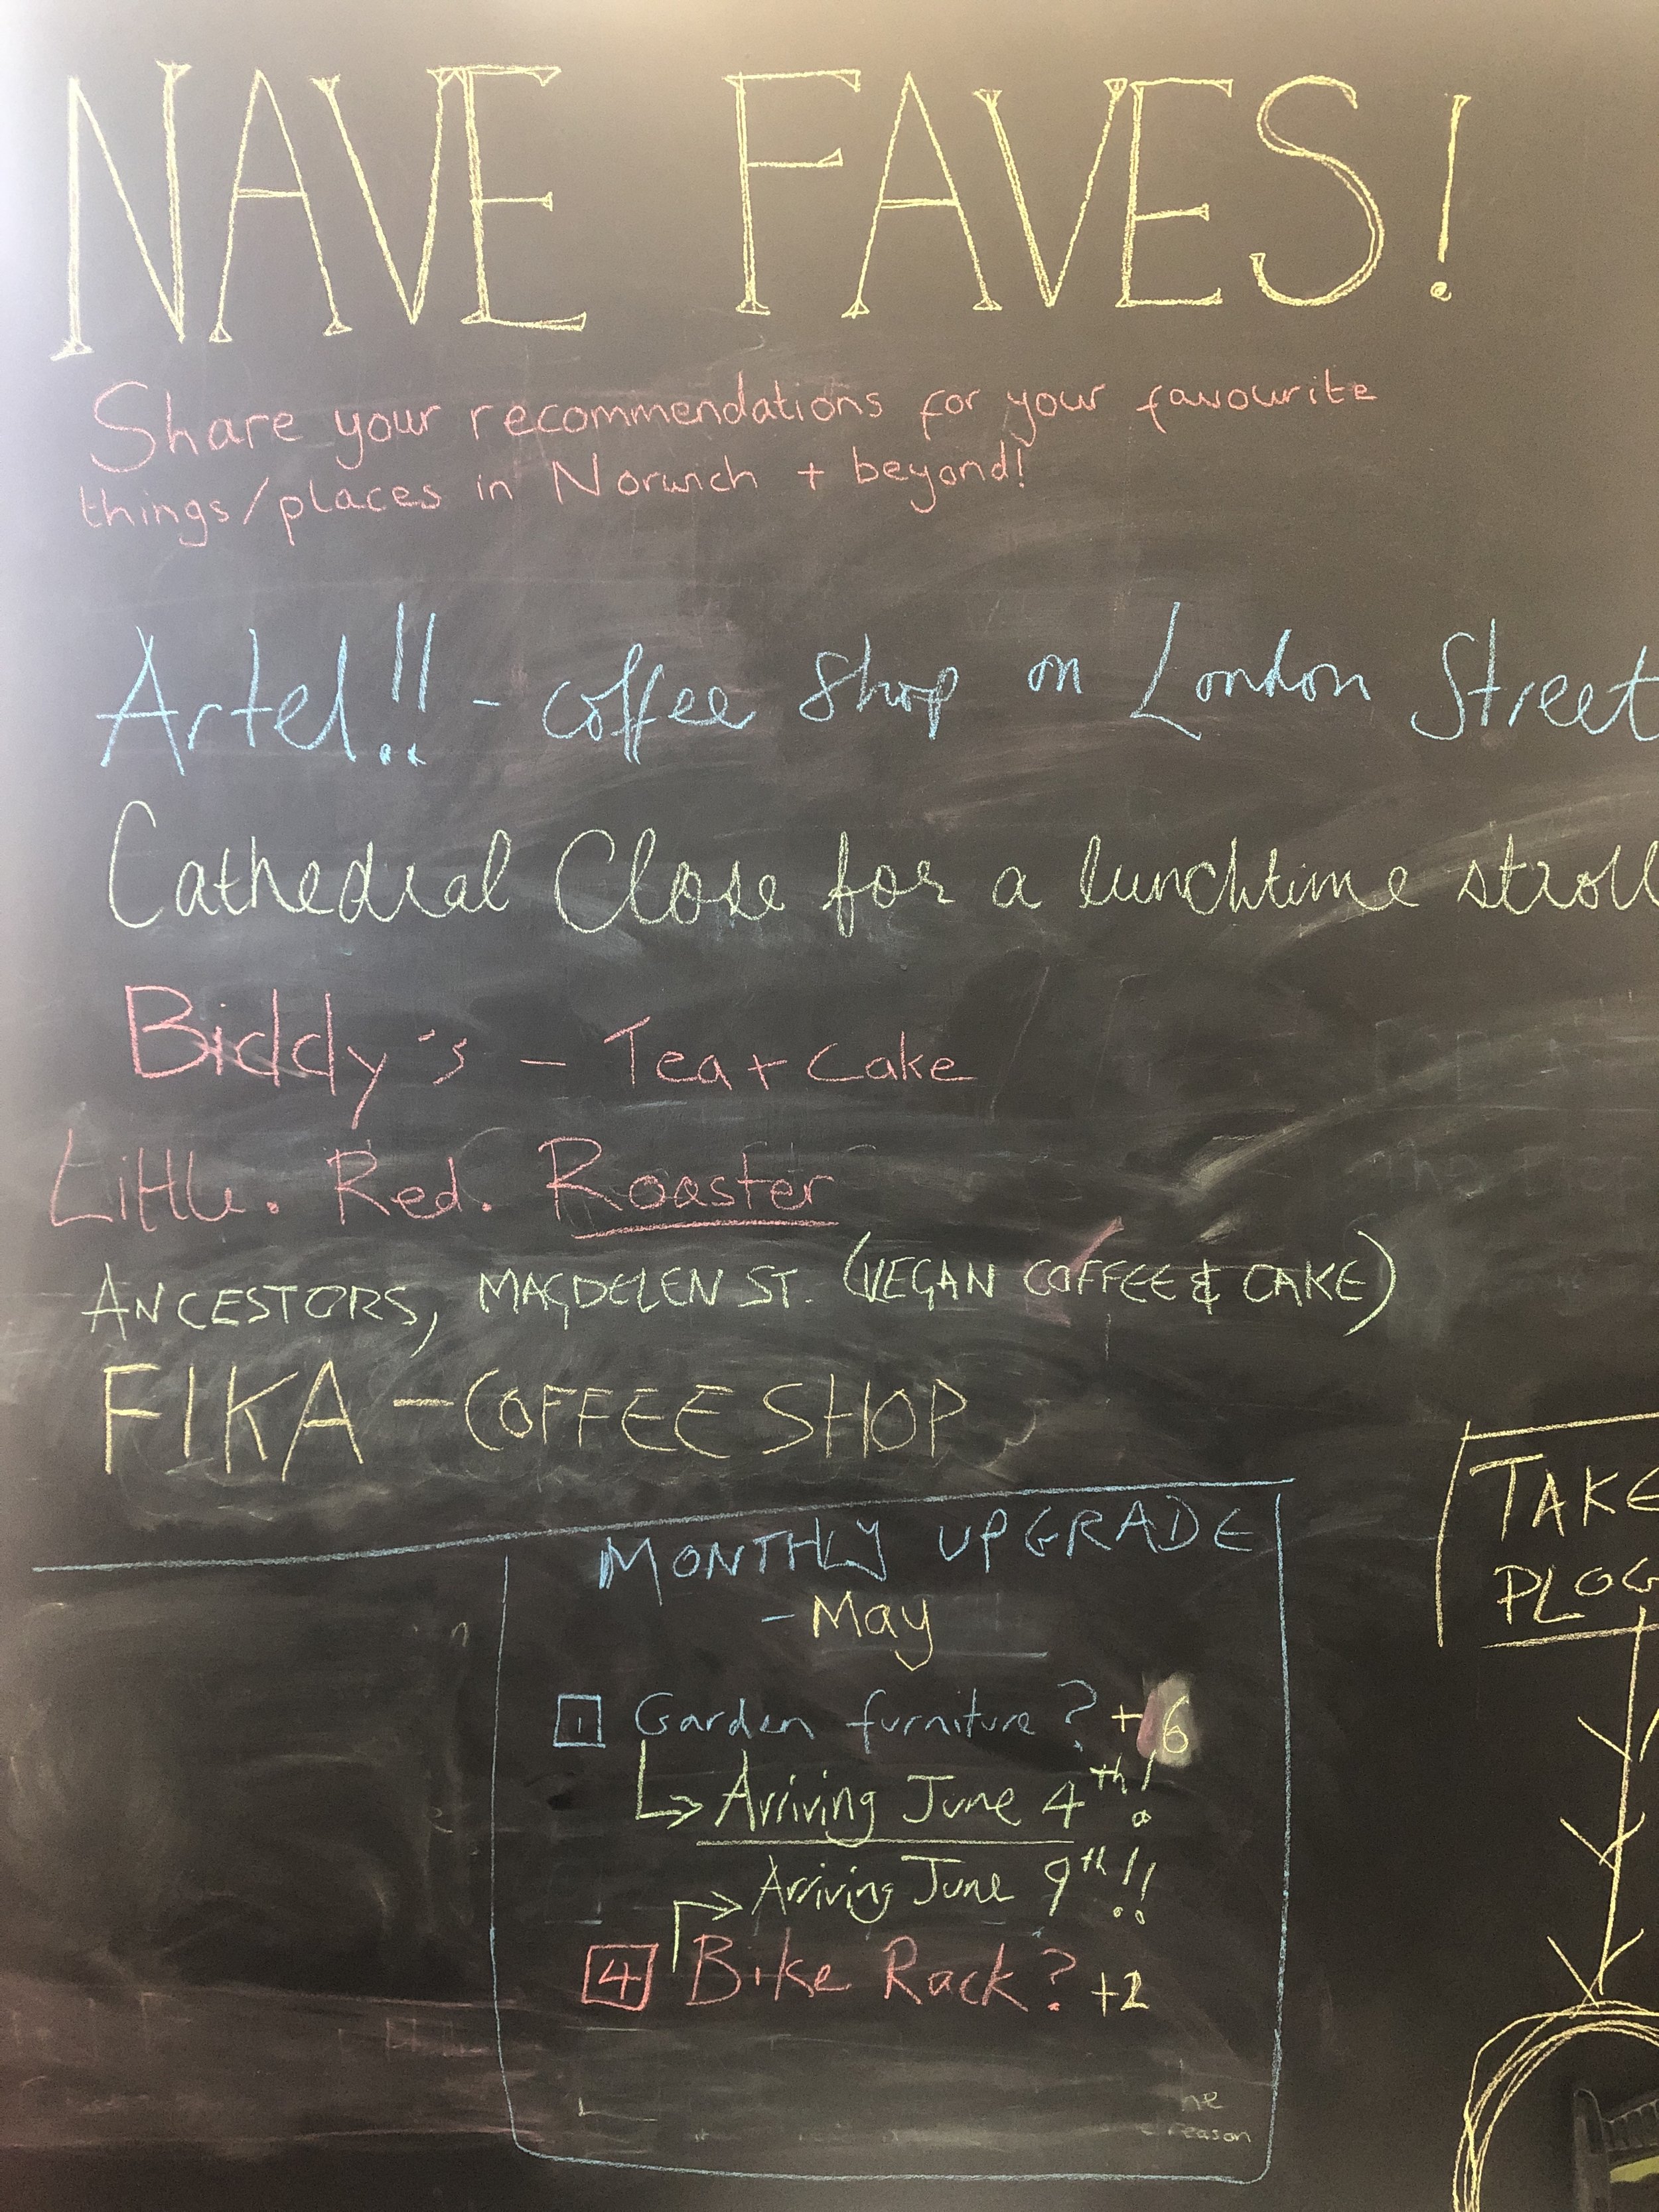 NAVE FAVES!
Share your recommendations for your favourite
things/places in Norwich + beyond!
Artel!! - coffee shop on London Street
Cathedral Close for a lunchtime stroll
Biddy's - Tea + Cake
Little. Red. Roaster
ANCESTORS, MAGDELEN ST. (VEGAN COFFEE & CAKE)
FIKA - COFFEE SHOP
MONTHLY UPGRADE
- May
1 Garden furniture? + 6
Arriving June 4th!
Arriving June 9th!!
4 Bike Rack? +2
ne
reason
TAKE
PLOG